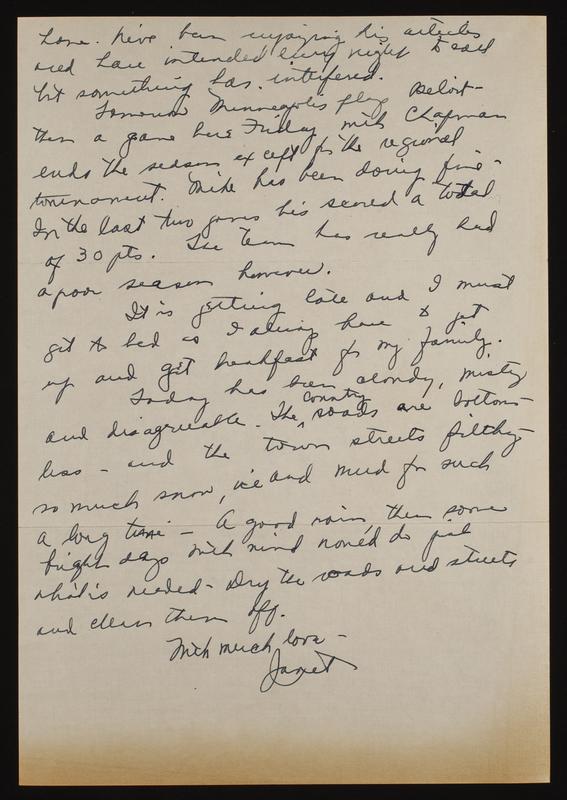 home. We've been enjoying his articles
and have intended every night to call
but something has interfered.
Tomorrow Minneapolis plays Beloit -
then a game here Friday with Chapman
ends the season except for the regional
tournament. Mike has been doing fine -
In the last two games his scored a total
of 30 pts. The team has really had
a poor season however.
It is getting late and I must
get to bed as I always have to get
up and get breakfast for my family.
Today has been cloudy, misty
and disagreeable. The country roads are bottom-
less - and the town streets filthy
so much snow, ice and mud for such
a long time - A good rain then some
bright days with wind would do just
what is needed - dry the roads and streets
and clean them off.
With much love -
Janet